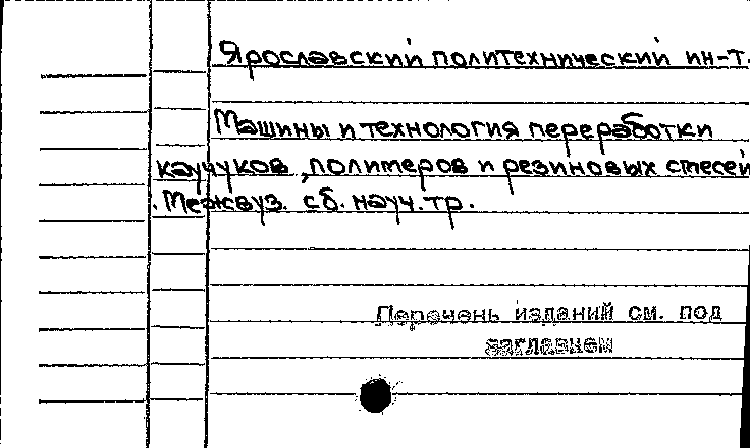 Ярославский политехнический ин-т.
Машины и технология переработки
каучуков, полимеров и резиновых смесей
. Межвуз. сб. науч. тр.
Перечень изданий см. под
заглавием